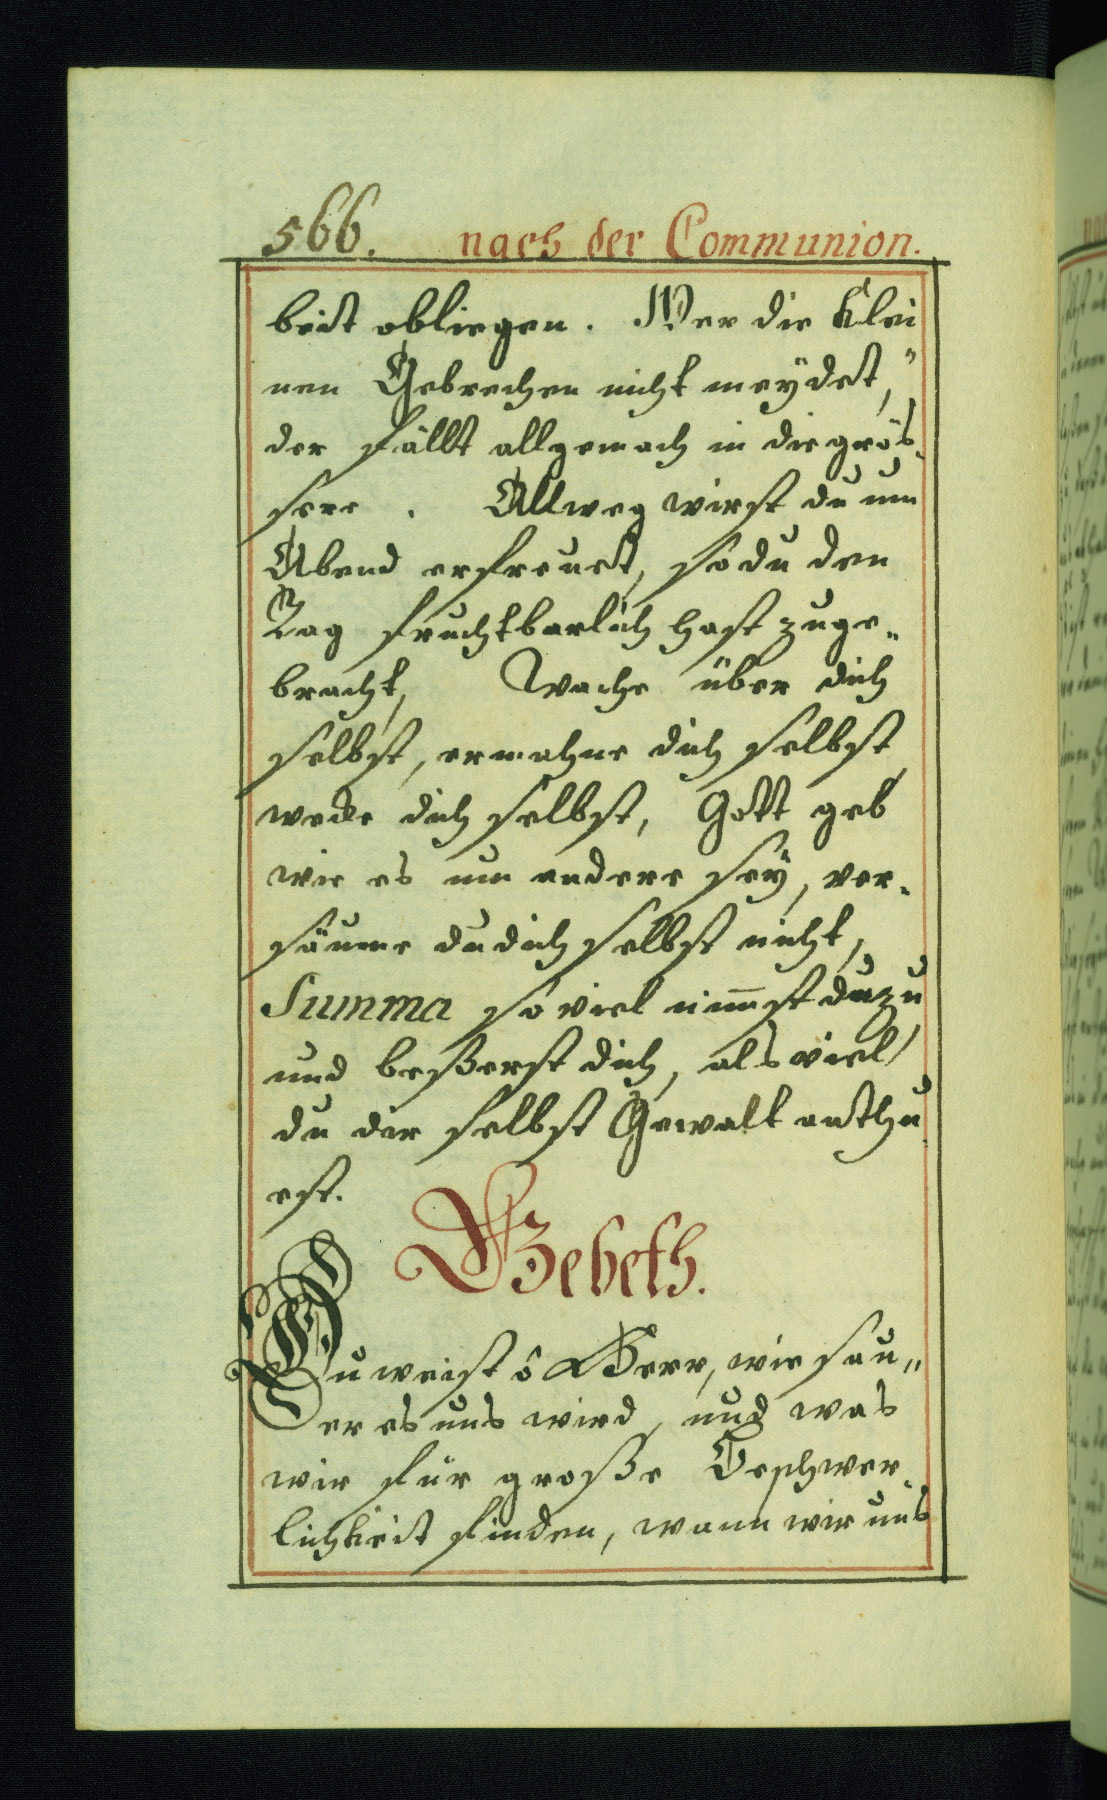 566. nach der Communion.
beit obliegen. Wer die klei
nen Gebrechen nicht meÿdet,"
der fällt allgemach in die grös-
sere. Allweg wirst du um
Abend erfreuet, so du den
Tag fruchtbarlich hast zuge-
bracht, Wache über dich
selbst, ermahne dich selbst
wecke dich selbst, Gott geb
wie es um andere seÿ, ver-
säume du dich selbst nicht,
Summa so viel nim̄st du zu
und beßerst dich, als viel
du dir selbst Gewalt anthu
est.
Gebeth.
Du weist ô Herr, wie sau„
er es uns wird, und was
wir für große Beschwer-
lichkeit finden, wann wir uns